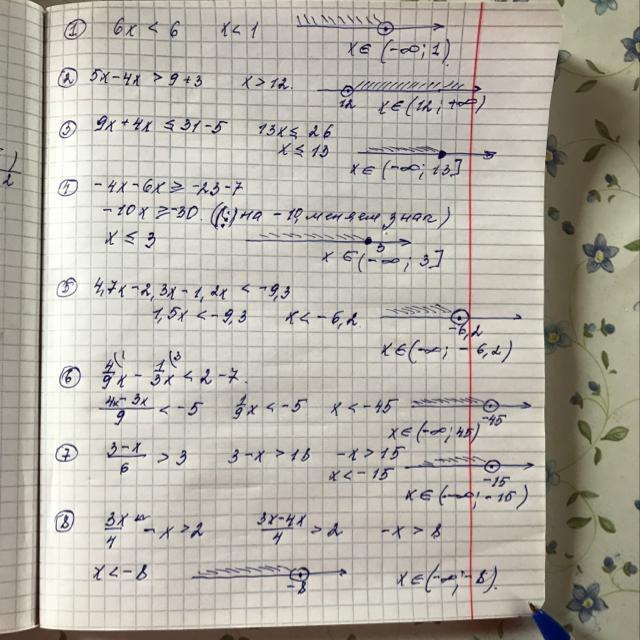 ① 6x < 6 x < 1
x ∈ (-∞; 1)
② 5x - 4x > 9 + 3 x > 12.
12 x ∈ (12; +∞)
③ 9x + 4x ≤ 31 - 5 13x ≤ 26
x ≤ 13
x ∈ (-∞; 13]
④ -4x - 6x ≥ -23 - 7
-10x ≥ -30 ((:) на -10, меняем знак)
x ≤ 3 3
x ∈ (-∞; 3]
⑤ 4,7x - 2,3x - 1,2x < -9,3
1,5x < -9,3 x < -6,2. -6,2
x ∈ (-∞; -6,2)
⑥ 4/9 x - 1/3 x < 2 - 7.
(4x - 3x)/9 < -5 1/9 x < -5 x < -45 -45
x ∈ (-∞; 45)
⑦ (3 - x)/6 > 3 3 - x > 18 -x > 15
x < -15 -15
x ∈ (-∞; -15)
⑧ 3x/4 - x > 2 (3x - 4x)/4 > 2 -x > 8
x < -8 -8 x ∈ (-∞; -8).